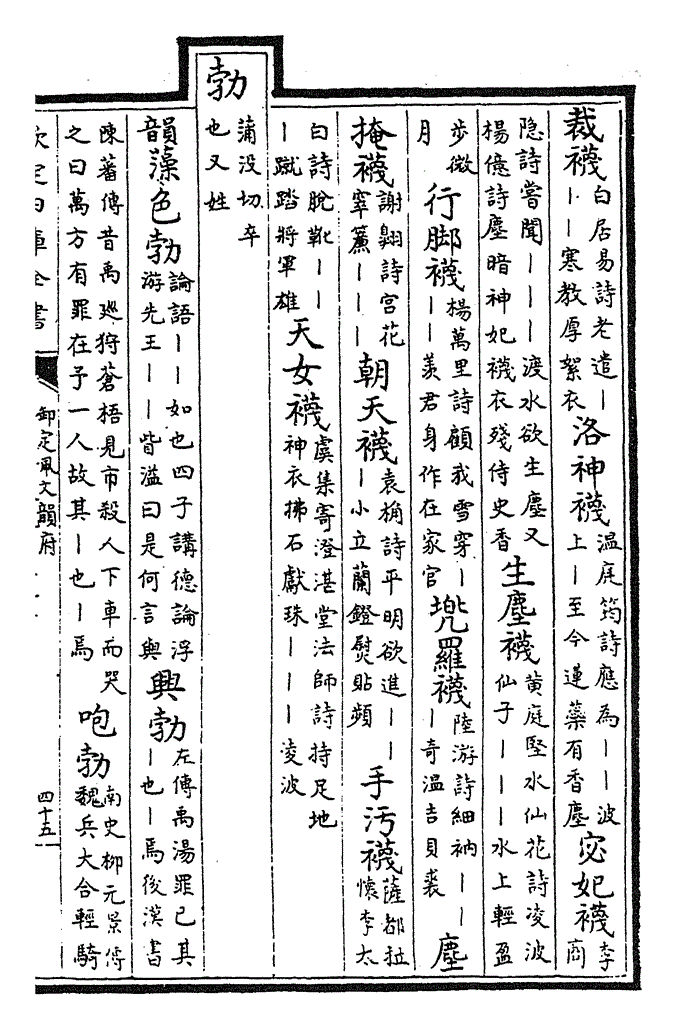 裁襪白居易詩老遣丨丨丨寒教厚絮衣洛神襪温庭筠詩應為丨丨波上丨至今蓮蘂有香塵宓妃襪李商
隐詩嘗聞丨丨丨渡水欲生塵又楊億詩塵暗神妃襪衣殘侍史香生塵襪黄庭堅水仙花詩凌波仙子丨丨丨水上輕盈
步微月行脚襪楊萬里詩顧我雪穿丨丨丨羨君身作在家官兠羅襪陸游詩細衲丨丨丨奇温吉貝裘塵
掩襪謝翱詩宫花窣簾丨丨丨朝天襪袁桷詩平明欲進丨丨丨小立蘭鐙熨貼頻手汚襪薩都拉懐李太
白詩脫靴丨丨丨蹴踏將軍雄天女襪虞集寄澄湛堂法師詩持足地神衣拂石獻珠丨丨丨凌波
勃蒲没切卒也又姓
韻藻色勃論語丨丨如也四子講德論浮游先王丨丨皆溢曰是何言與興勃左傳禹湯罪已其丨也丨焉後漢書
陳蕃傳昔禹廵狩蒼梧見市殺人下車而哭之曰萬方有罪在予一人故其丨也丨焉咆勃南史柳元景傳魏兵大合輕騎
欽定四庫全書
御定佩文韻府
四十五